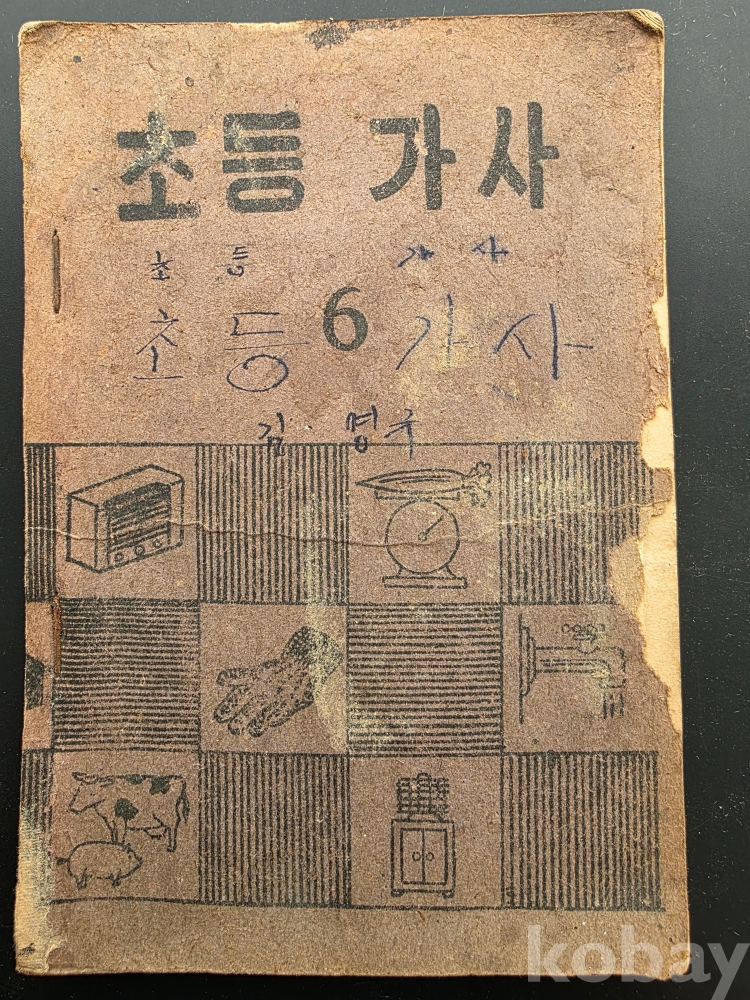 초등 가사
초 등 가 사
6
초 등 가 사
김 · 명구
kobay